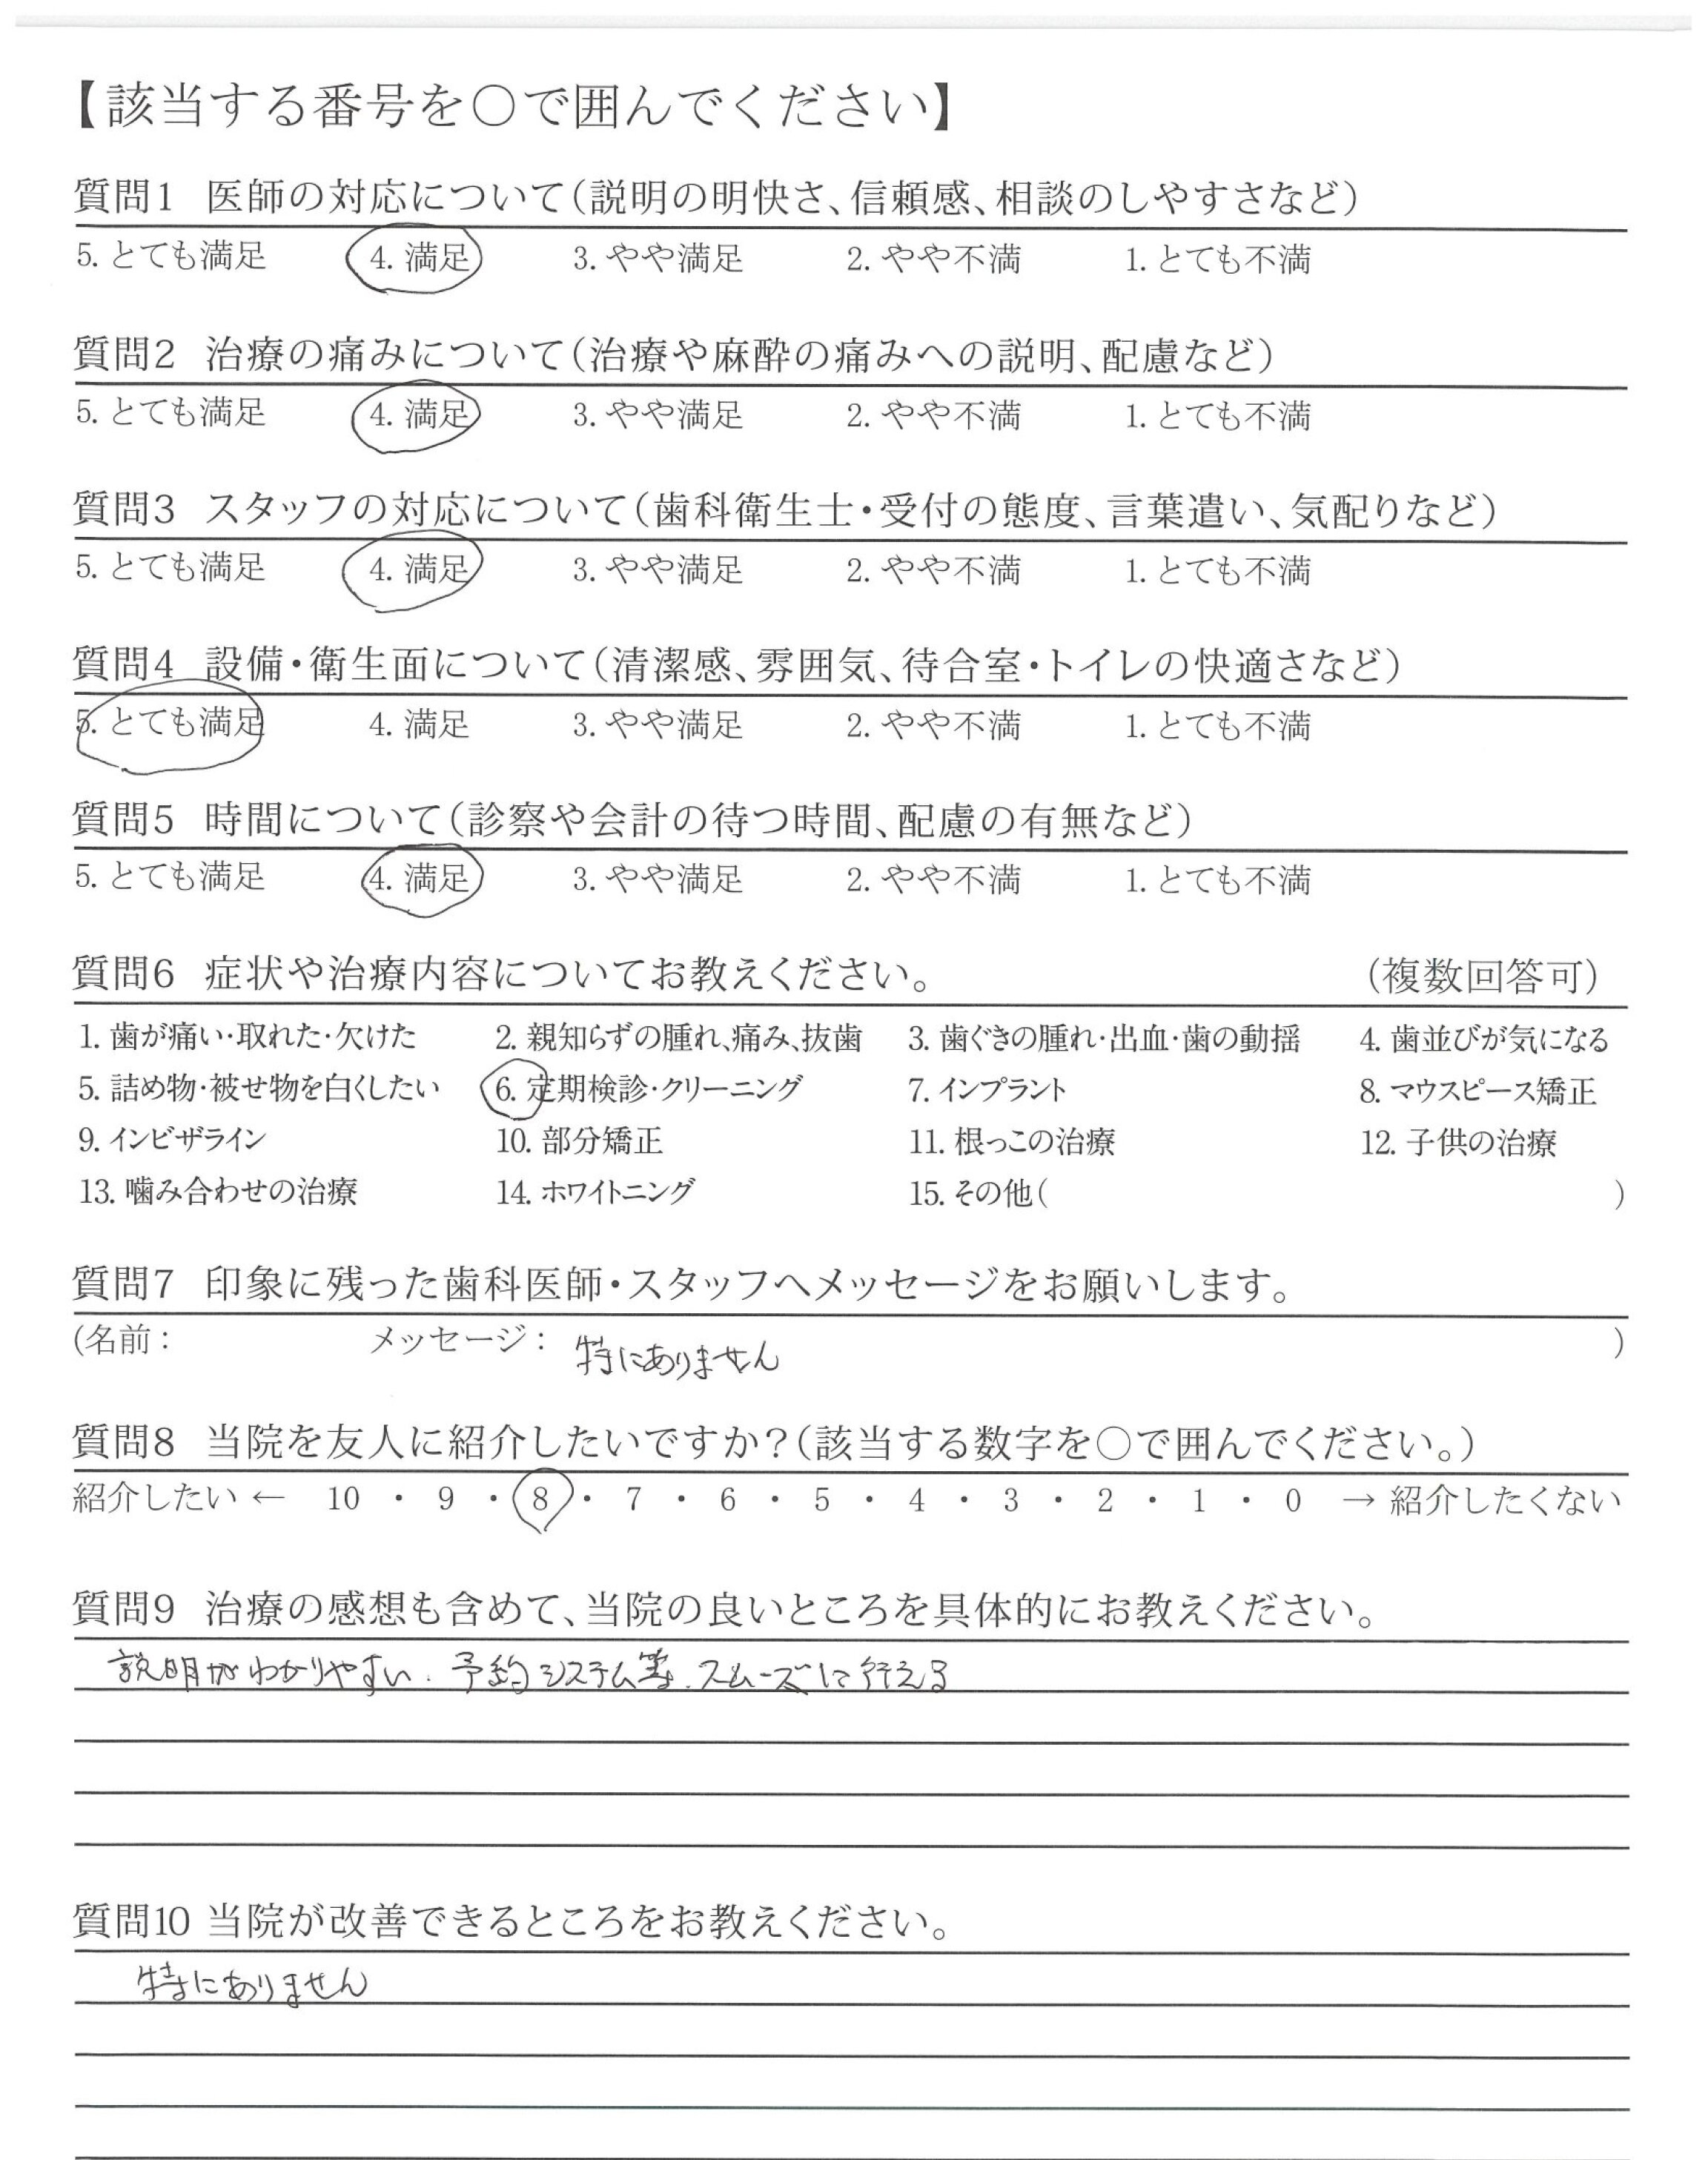 【該当する番号を○で囲んでください】
質問1 医師の対応について(説明の明快さ、信頼感、相談のしやすさなど)
5. とても満足 4. 満足 3. やや満足 2. やや不満 1. とても不満
質問2 治療の痛みについて(治療や麻酔の痛みへの説明、配慮など)
5. とても満足 4. 満足 3. やや満足 2. やや不満 1. とても不満
質問3 スタッフの対応について(歯科衛生士・受付の態度、言葉遣い、気配りなど)
5. とても満足 4. 満足 3. やや満足 2. やや不満 1. とても不満
質問4 設備・衛生面について(清潔感、雰囲気、待合室・トイレの快適さなど)
5. とても満足 4. 満足 3. やや満足 2. やや不満 1. とても不満
質問5 時間について(診察や会計の待つ時間、配慮の有無など)
5. とても満足 4. 満足 3. やや満足 2. やや不満 1. とても不満
質問6 症状や治療内容についてお教えください。 (複数回答可)
1. 歯が痛い・取れた・欠けた 2. 親知らずの腫れ、痛み、抜歯 3. 歯ぐきの腫れ・出血・歯の動揺 4. 歯並びが気になる
5. 詰め物・被せ物を白くしたい 6. 定期検診・クリーニング 7. インプラント 8. マウスピース矯正
9. インビザライン 10. 部分矯正 11. 根っこの治療 12. 子供の治療
13. 噛み合わせの治療 14. ホワイトニング 15. その他( )
質問7 印象に残った歯科医師・スタッフへメッセージをお願いします。
(名前: メッセージ: 特にありません )
質問8 当院を友人に紹介したいですか?(該当する数字を○で囲んでください。)
紹介したい ← 10 ・ 9 ・ 8 ・ 7 ・ 6 ・ 5 ・ 4 ・ 3 ・ 2 ・ 1 ・ 0 → 紹介したくない
質問9 治療の感想も含めて、当院の良いところを具体的にお教えください。
説明がわかりやすい. 予約システム等. スムーズに行える
質問10 当院が改善できるところをお教えください。
特にありません